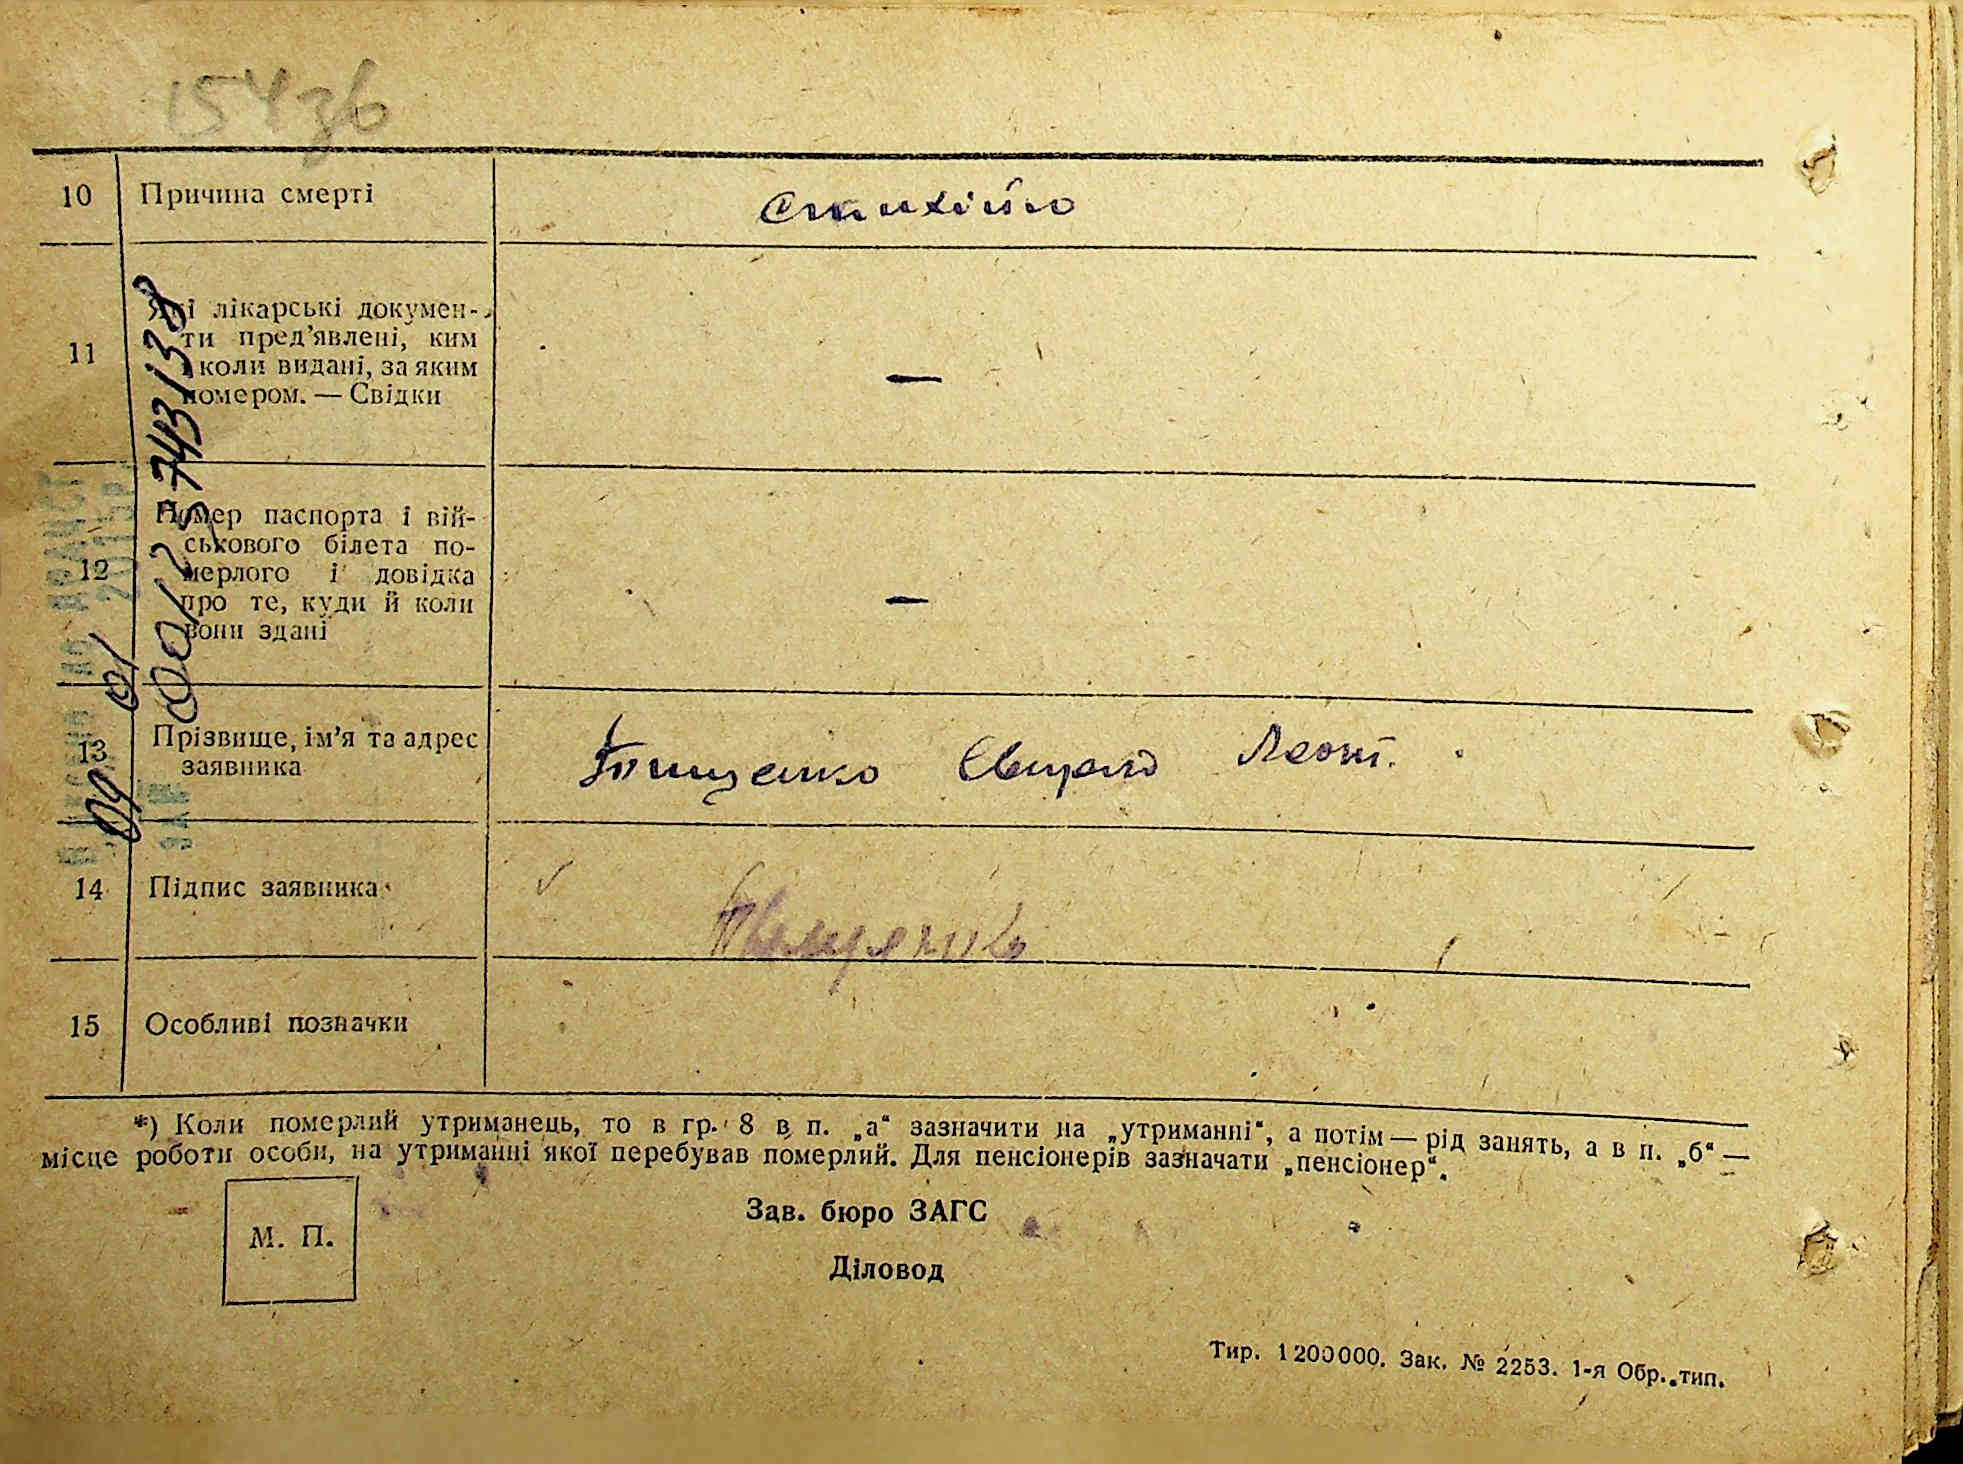 154зв
10 Причина смерті стихійно
11 Які лікарські докумен-
ти пред’явлені, ким
і коли видані, за яким
номером. — Свідки —
12 Номер паспорта і вій-
ськового білета по-
мерлого і довідка
про те, куди й коли
вони здані —
13 Прізвище, ім’я та адрес
заявника Тищенко Леонт.
14 Підпис заявника
15 Особливі позначки
*) Коли померлий утриманець, то в гр. 8 в п. „а“ зазначити на „утриманні“, а потім — рід занять, а в п. „б“ —
місце роботи особи, на утриманні якої перебував померлий. Для пенсіонерів зазначати „пенсіонер“.
М. П.
Зав. бюро ЗАГС
Діловод
Тир. 1200000. Зак. № 2253. 1-я Обр. тип.